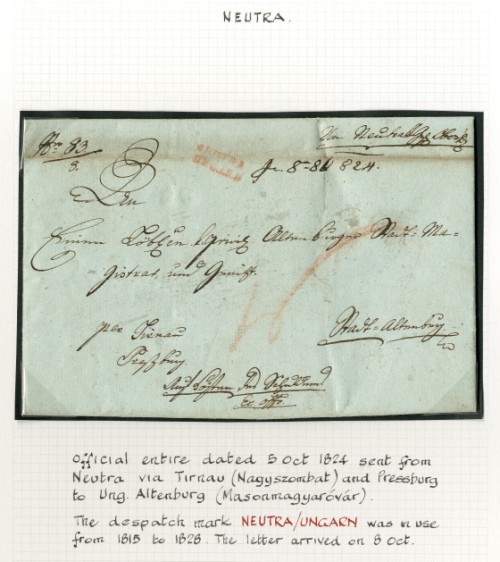 NEUTRA.
Von Neutra
NEUTRA
UNGARN
824.
Den
Einem Löbl. Altenburger Stadt-Ma-
gistrat, und Gericht.
per Tirnau
Preßburg
Stadt-Altenburg
Ex offo.
Official entire dated 5 Oct 1824 sent from
Neutra via Tirnau (Nagyszombat) and Pressburg
to Ung. Altenburg (Masonmagyaróvár).
The despatch mark NEUTRA/UNGARN was in use
from 1815 to 1828. The letter arrived on 8 Oct.